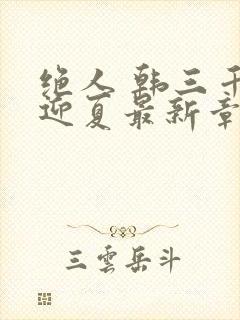 绝人 韩三千
迎夏最新章
三雲岳斗